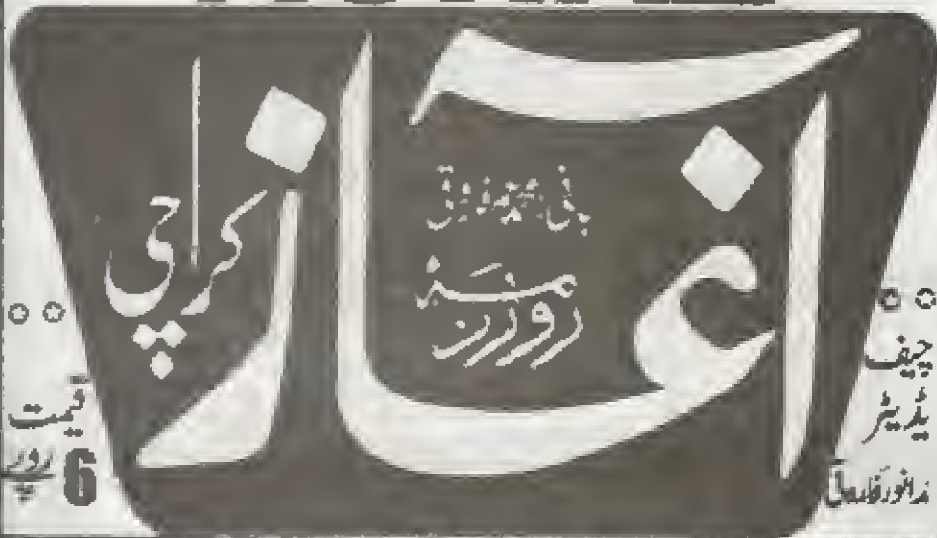 آغاز
کراچی
روزنامہ
چیف
ایڈیٹر
انور فاروقی
قیمت
6 روپے